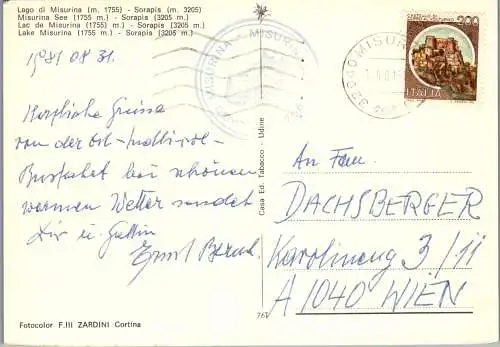 Lago di Misurina (m. 1755) - Sorapis (m. 3205)
Misurina See (1755 m.) - Sorapis (3205 m.)
Lac de Misurina (1755 m.) - Sorapis (3205 m.)
Lake Misurina (1755 m.) - Sorapis (3205 m.)
1981 08 31.
Herzliche Grüsse
von der
Busfahrt bei schönem
warmen Wetter sendet
u. Gattin
Ernst
Fotocolor F.lli ZARDINI Cortina
Casa Ed. Tabacco - Udine
76
MISURINA - MISURINA
32040 MISUR
200
ITALIA
An Fam.
DACHSBERGER
Karolineng 3/11
A 1040 WIEN